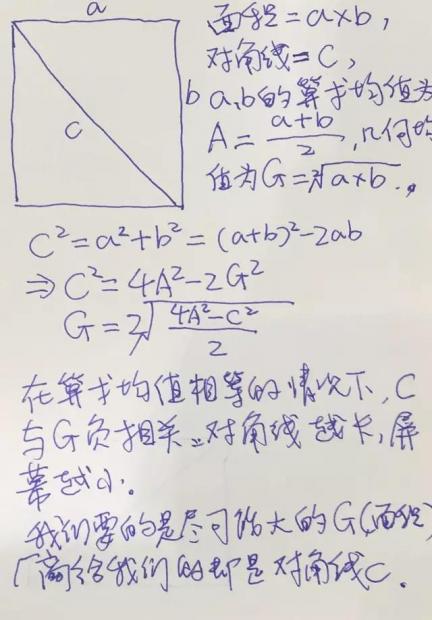 a
面积=a×b,
对角线=C,
b
a,b的算术均值为
c
A=(a+b)/2, 几何均
值为G=²√a×b.
C²=a²+b²=(a+b)²-2ab
⇒C²=4A²-2G²
G=²√(4A²-C²)/2
在算术均值相等的情况下, C
与G负相关∴对角线越长, 屏
幕越小.
我们要的是尽可能大的G(面积)
厂商给我们的却是对角线C.